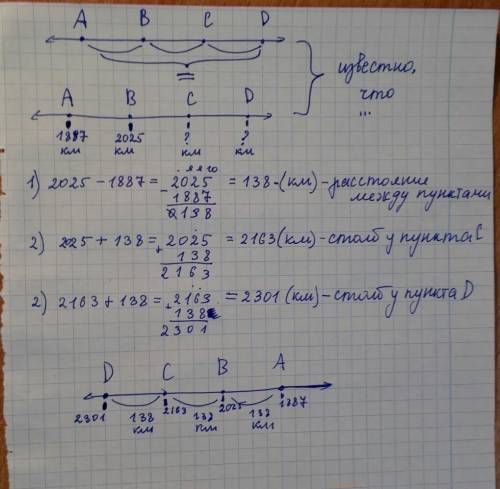 A B C D
=
известно,
что
...
A B C D
1887 2025 ? ?
км км км км
1) 2025 - 1887 = 2025 = 138 (км) - расстояние
- 1887 между пунктами
0138
2) 2025 + 138 = 2025 = 2163 (км) - столб у пункта C
+ 138
2163
2) 2163 + 138 = 2163 = 2301 (км) - столб у пункта D
+ 138
2301
D C B A
2301 138 2163 138 2025 138 1887
км км км